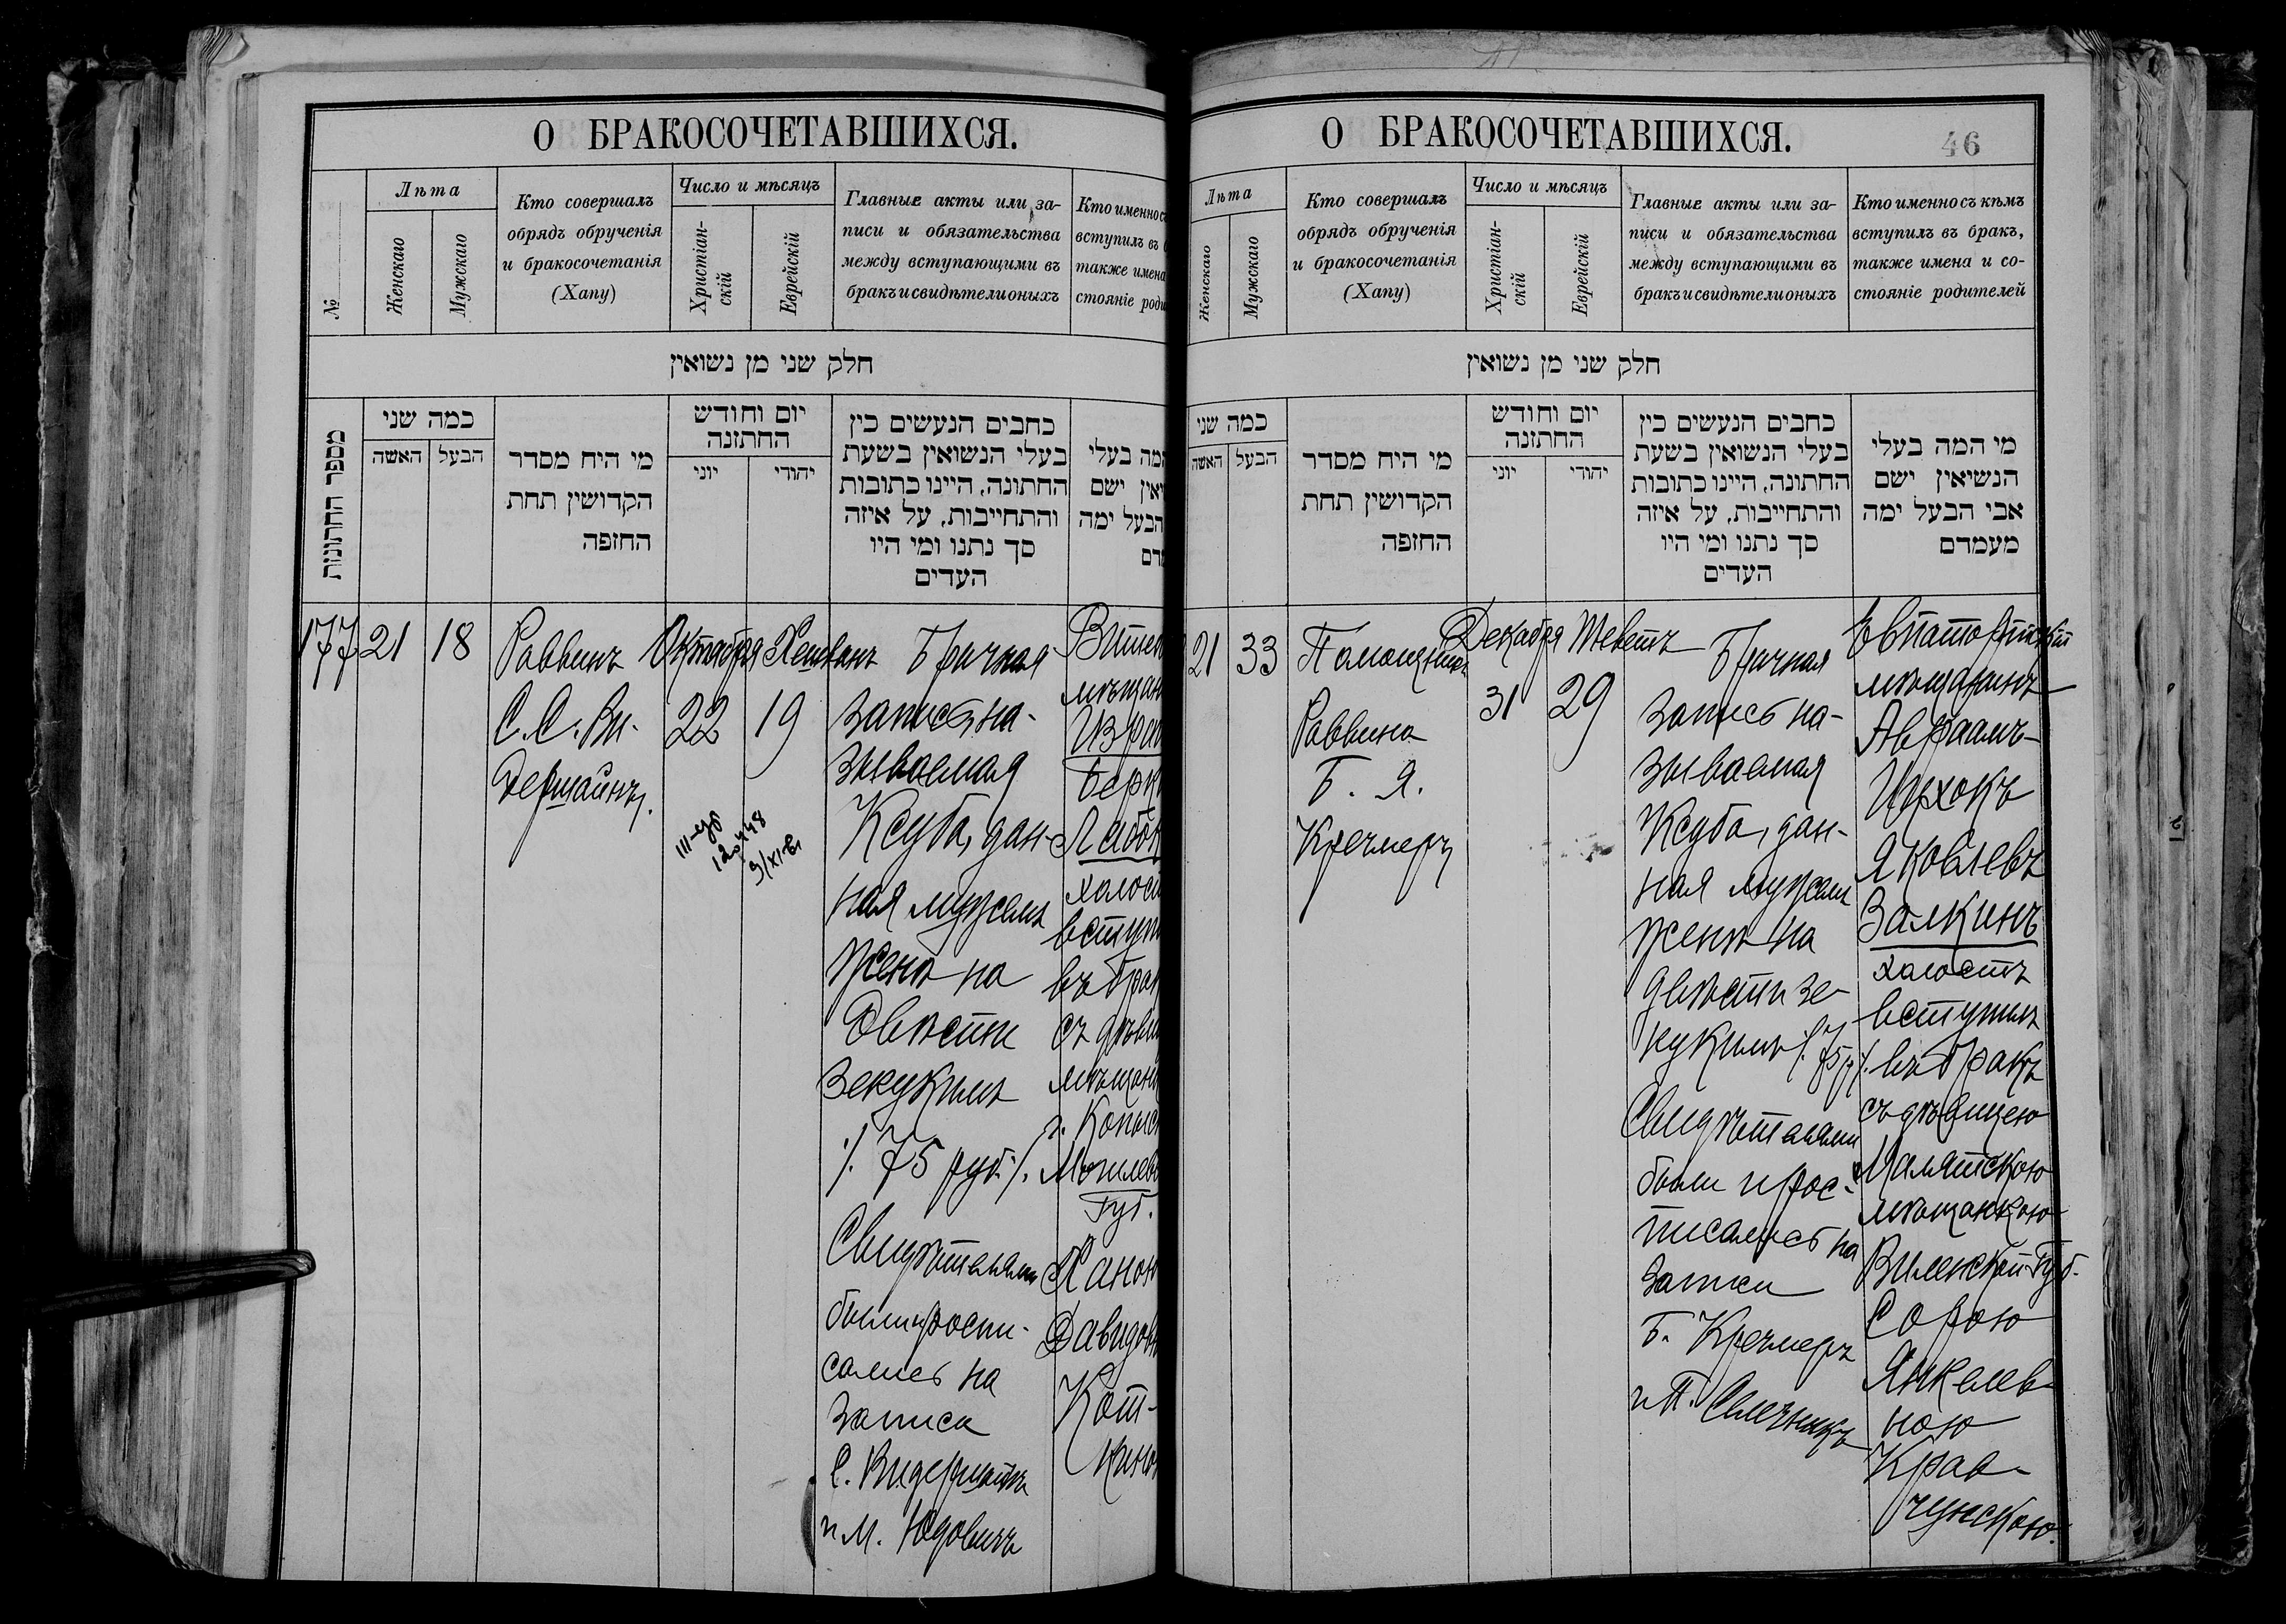 О БРАКОСОЧЕТАВШИХСЯ.
№
Лѣта
Женскаго
Мужскаго
Кто совершалъ
обрядъ обрученія
и бракосочетанія
(Хапу)
Число и мѣсяцъ
Христіан-
скій
Еврейскій
Главные акты или за-
писи и обязательства
между вступающими въ
бракъ и свидѣтели оныхъ
Кто именно съ
вступилъ въ
также имена
стояніе роди
חלק שני מן נשואין
מספר החתונות
כמה שני
האשה
הבעל
מי היח מסדר
הקדושין תחת
החזפה
יום וחודש
החתזנה
יוני
יהודי
כחבים הנעשים כין
בעלי הנשואין בשעת
החתונה, היינו כתובות
והתחייבות, על איזה
סך נתנו ומי היו
העדים
המה בעלי
יאין ישם
הבעל ימה
177
21
18
Раввинъ
С. С. Ви-
дершайнъ.
Октября
22
Хешванъ
19
III-езб
120448
9/XI-61
Брачная
запись, на-
зываемая
Ксуба, дан-
ная мужемъ
женѣ на
Двѣсти
Зекукимъ
/. 75 руб. /.
Свидѣтелями
были и распи-
сались на
записи
С. Видершайнъ
и М. Юдовичъ
Витеб
мѣщан
Изра
Берк
холост
вступи
въ брак
съ дѣви
мѣщан
г. Копыс
Могилев
Губ.
Ханою
Давидов
Кот-
О БРАКОСОЧЕТАВШИХСЯ.
46
Лѣта
Женскаго
Мужскаго
Кто совершалъ
обрядъ обрученія
и бракосочетанія
(Хапу)
Число и мѣсяцъ
Христіан-
скій
Еврейскій
Главные акты или за-
писи и обязательства
между вступающими въ
бракъ и свидѣтели оныхъ
Кто именно съ кѣмъ
вступилъ въ бракъ,
также имена и со-
стояніе родителей
חלק שני מן נשואין
כמה שני
האשה
הבעל
מי היח מסדר
הקדושין תחת
החזפה
יום וחודש
החתזנה
יוני
יהודי
כחבים הנעשים כין
בעלי הנשואין בשעת
החתונה, היינו כתובות
והתחייבות, על איזה
סך נתנו ומי היו
העדים
מי המה בעלי
הנשיאין ישם
אבי הבעל ימה
מעמדם
21
33
Помощникъ
Раввина
Б. Я.
Кречмеръ
Декабря
31
Теветъ
29
Брачная
запись на-
зываемая
Ксуба, дан-
ная мужемъ
женѣ на
двѣсти зе-
кукимъ /. 75 р /.
Свидѣтелями
были и рас-
писались на
записи
Б. Кречмеръ
и
Евпаторійскій
мѣщанинъ
Авраамъ-
Ицхокъ
Яковлевъ
Залкинъ
холостъ
вступилъ
въ бракъ
съ дѣвицею
мѣщанкою
Виленской Губ.
Сорою
Янкелев-
ною
Крав-
чунскою.